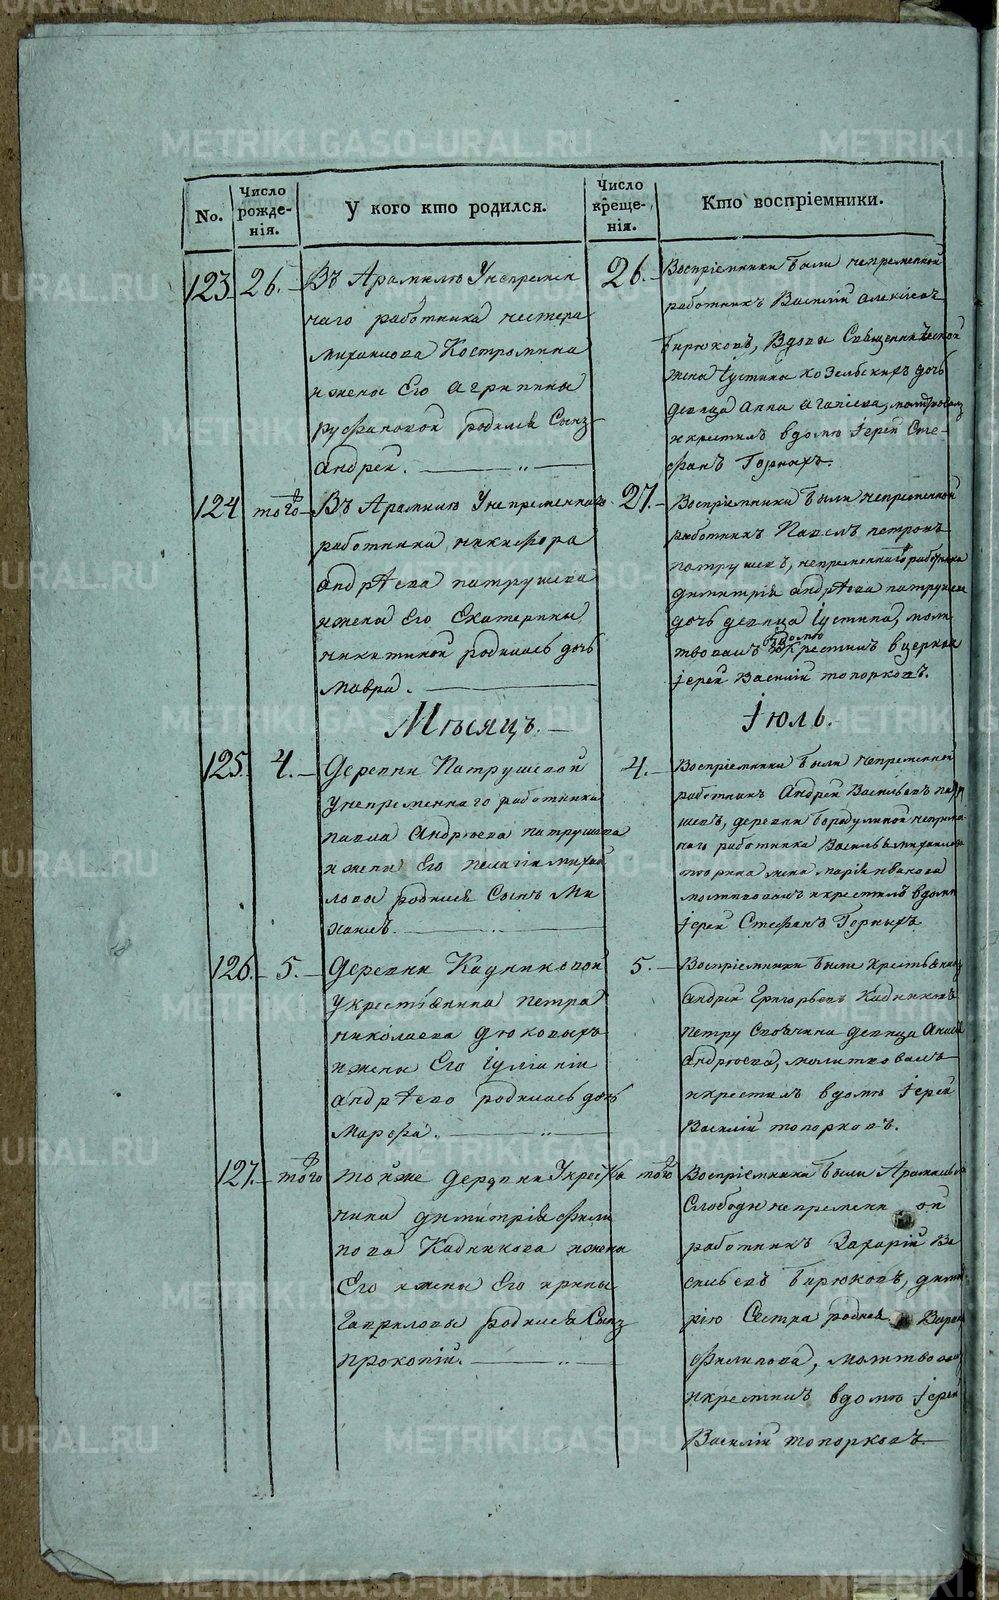 No.
Число рожде-нія.
У кого кто родился.
Число креще-нія.
Кто воспріемники.
123
26.
Въ Арамилѣ Унепремен
наго работника нестера
Михаилова Костромина
и жены Его агрипины
руфиновой родился Сынъ
андрей.
26.
Воспріемники были непременной
работникъ Василій алексіевъ
бирюковъ, Вдовы Священнической
жена Іустина козельскихъ дочь
девица анна агапіева,
и крестилъ вдомѣ Іерей Сте-
фанъ Горныхъ.
124
того
Въ Арамилѣ Унепременнаго
работника никифора
андрѣева патрушева
и жены Его Екатерины
никитиной родилась дочь
Мавра.
27.
Воспріемники были непременной
работникъ Павелъ петровъ
патрушевъ, непременнаго работника
димитрія андрѣева патрушева
дочь девица Іустина, моли
твовалъ вдомѣ крестилъ вцеркви
Іерей Василій топорковъ.
Мѣсяцъ.
Іюль.
125
4.
Деревни Патрушевой
унепременнаго работника
павла Андрѣева патрушева
и жены Его пелагіи михаи
ловы родился Сынъ Ми
хаилъ.
4.
Воспріемники были непременной
работникъ Андрей Васильевъ патру
шевъ, деревни бородулиной непреме
наго работника Василья михаилова
жена марія иванова
молитвовалъ и крестилъ вдомѣ
Іерей Стефанъ Горныхъ
126.
5.
Деревни Кадниковой
укрестьянина петра
николаева дюковыхъ
и жены Его Іуліаніи
андрѣево родилась дочь
Марфа.
5.
Воспріемники были крестьянинъ
андрей Григорьевъ Кадниковъ
петру Своячина девица
андрѣева, молитвовалъ
и крестилъ вдомѣ Іерей
Василій топорковъ.
127.
того
тойже деревни Укрестья
нина димитрія фили
пова Кадникова и жены
Его и жены Его ирины
Гавриловы родился Сынъ
прокопій.
того
Воспріемники были Арамильской
Слободы непремен ой
работникъ Захарій Ва
сильевъ бирюковъ, дмит
рію Сестра родная
филипова, молитвовалъ
и крестилъ вдомѣ Іерей
Василій топорковъ
METRIKI.GASO-URAL.RU